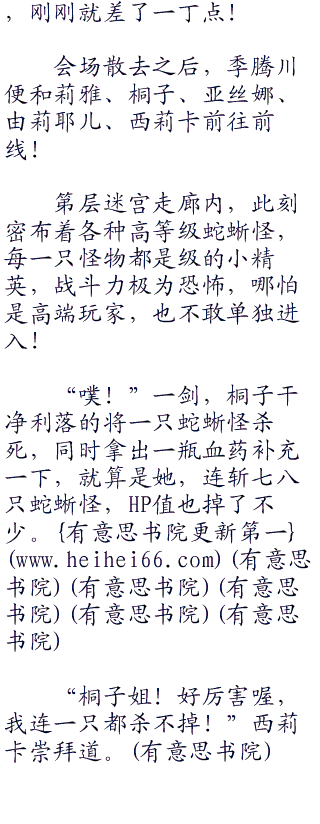 ，刚刚就差了一丁点！
会场散去之后，季腾川
便和莉雅、桐子、亚丝娜、
由莉耶儿、西莉卡前往前
线！
第层迷宫走廊内，此刻
密布着各种高等级蛇蜥怪，
每一只怪物都是级的小精
英，战斗力极为恐怖，哪怕
是高端玩家，也不敢单独进
入！
“噗！”一剑，桐子干
净利落的将一只蛇蜥怪杀
死，同时拿出一瓶血药补充
一下，就算是她，连斩七八
只蛇蜥怪，HP值也掉了不
少。{有意思书院更新第一}
(www.heihei66.com)(有意思
书院)(有意思书院)(有意思
书院)(有意思书院)(有意思
书院)
“桐子姐！好厉害喔，
我连一只都杀不掉！”西莉
卡崇拜道。(有意思书院)